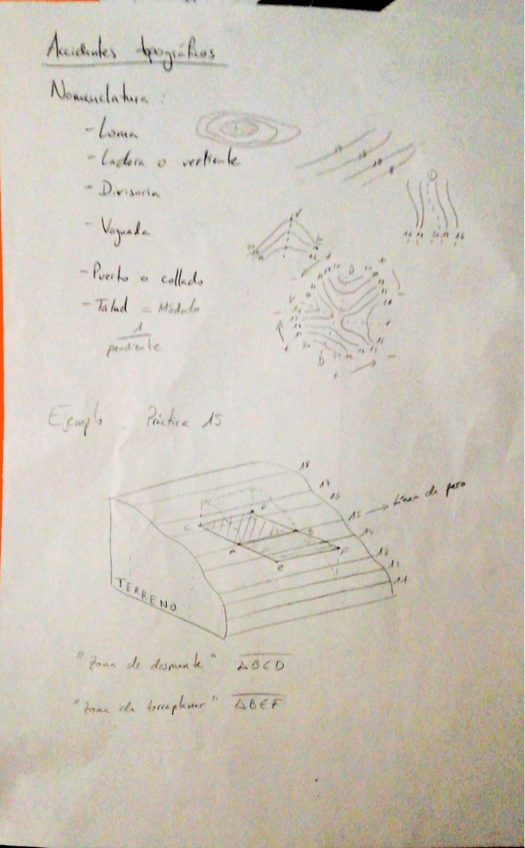 Accidentes topográficos
Nomenclatura :
- Loma
- Ladera o vertiente
- Divisoria
- Vaguada
- Puerto o collado
- Talud = Módulo
1
pendiente
Ejemplo. Práctica 15
18
17
16
15 → Línea de paso
14
13
12
11
C D
A B
E F
TERRENO
"Zona de desmonte" ABCD
"Zona de terraplenar" ABEF